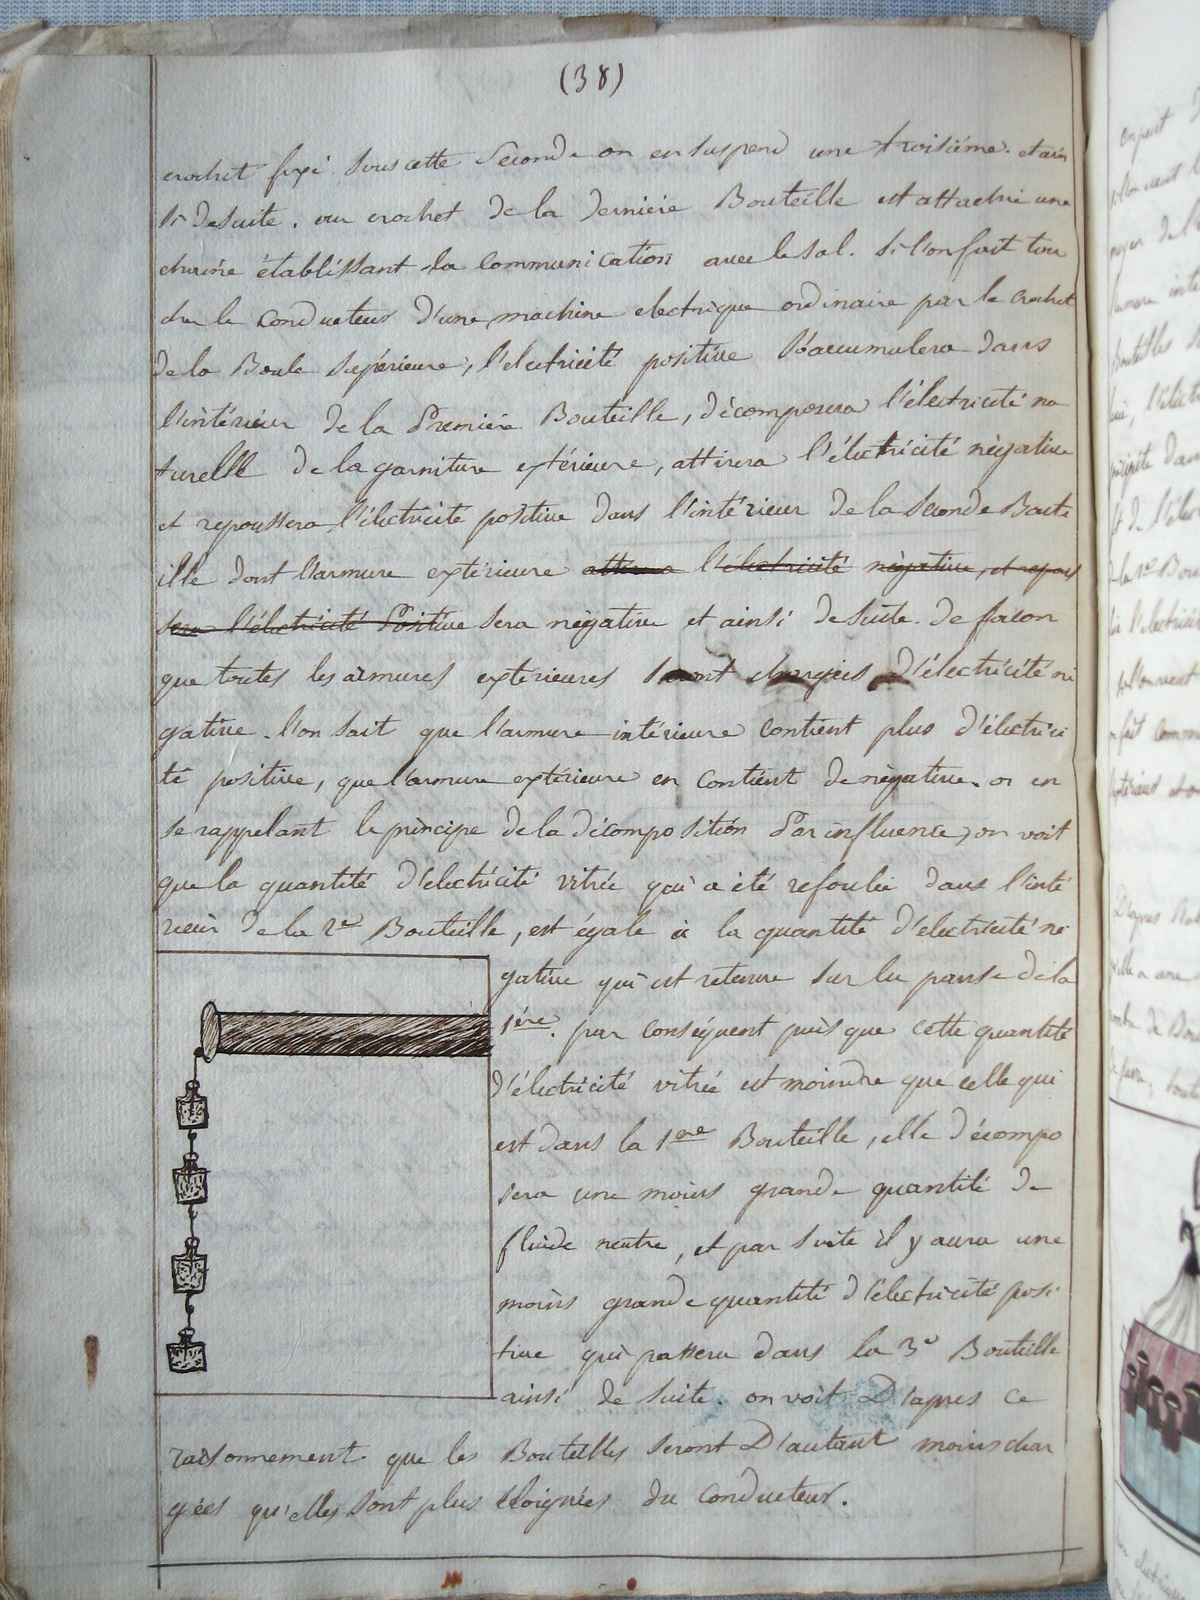 (38)
crochet fixé sous cette seconde on en suspend une troisiéme. et ain
si de suite. au crochet de la derniére Bouteille est attachée une
chaine établissant la communication avec le sol. si l'on fait tou
cher le conducteur d'une machine electrique ordinaire par le crochet
de la Boule supérieure, l'electricité positive s'accumulera dans
l'intérieur de la Premiére Bouteille, décomposera l'électricité na
turelle de la garniture extérieure, attirera l'électricité négative
et repoussera l'électricité positive dans l'intérieur de la seconde Boute
ille dont l'armure extérieure attirera l'électricité négative, et repous
sera l'électricité Positive sera négative et ainsi de suite. de façon
que toutes les armures extérieures seront chargées d'électricité né
gative. l'on sait que l'armure intérieure contient plus d'électrici
té positive, que l'armure extérieure en contient de négative. or en
se rappelant le principe de la décomposition Par influence, on voit
que la quantité d'électricité vitrée qui a été refoulée dans l'inté
rieur de la 2e Bouteille, est égale à la quantité d'électricité né
gative qui est retenue sur la panse de la
1ére. par conséquent puis que cette quantité
d'électricité vitrée est moindre que celle qui
est dans la 1ere Bouteille, elle décompo
sera une moins grande quantité de
fluide neutre, et par suite il y aura une
moins grande quantité d'électricité posi
tive qui passera dans la 3e Bouteille
ainsi de suite. on voit D'apres ce
raisonnement que les Bouteilles seront D'autant moins char
gées qu'elles sont plus éloignées du conducteur.